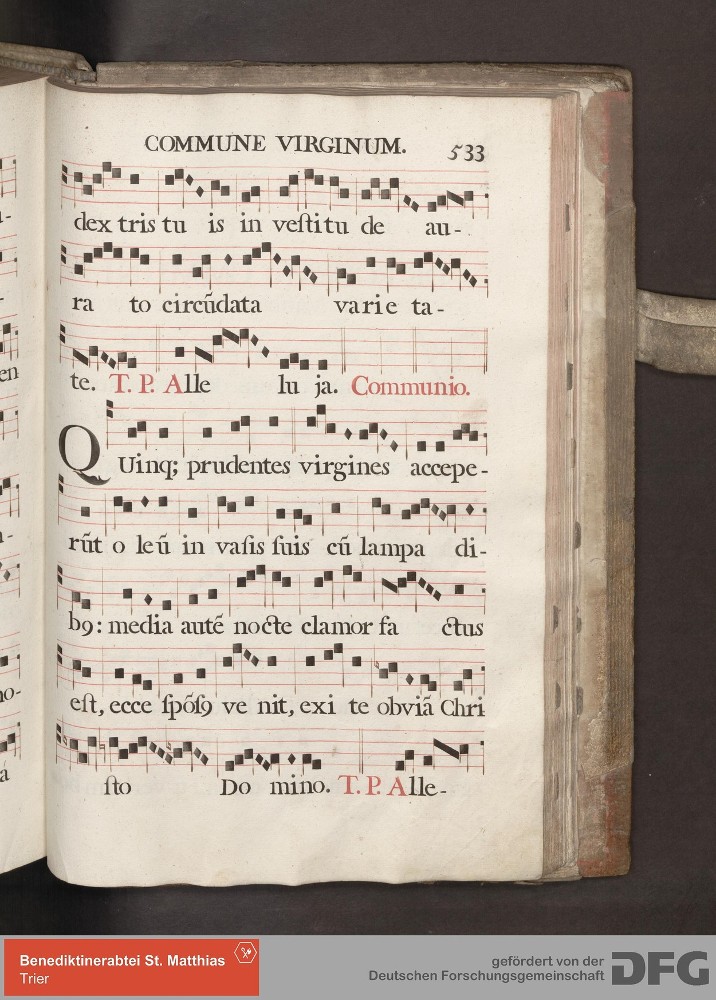 COMMUNE VIRGINUM. 533
dextris tu is in veſtitu de au-
ra to circũdata varie ta-
te. T. P. Alle lu ja. Communio.
QUinq; prudentes virgines accepe-
rũt o leũ in vaſis ſuis cũ lampa di-
b9: media autẽ nocte clamor fa ctus
eſt, ecce ſpõſ9 ve nit, exi te obviã Chri
ſto Do mino. T. P. Alle-
en
no-
a
Benediktinerabtei St. Matthias
Trier
gefördert von der
Deutschen Forschungsgemeinschaft
DFG